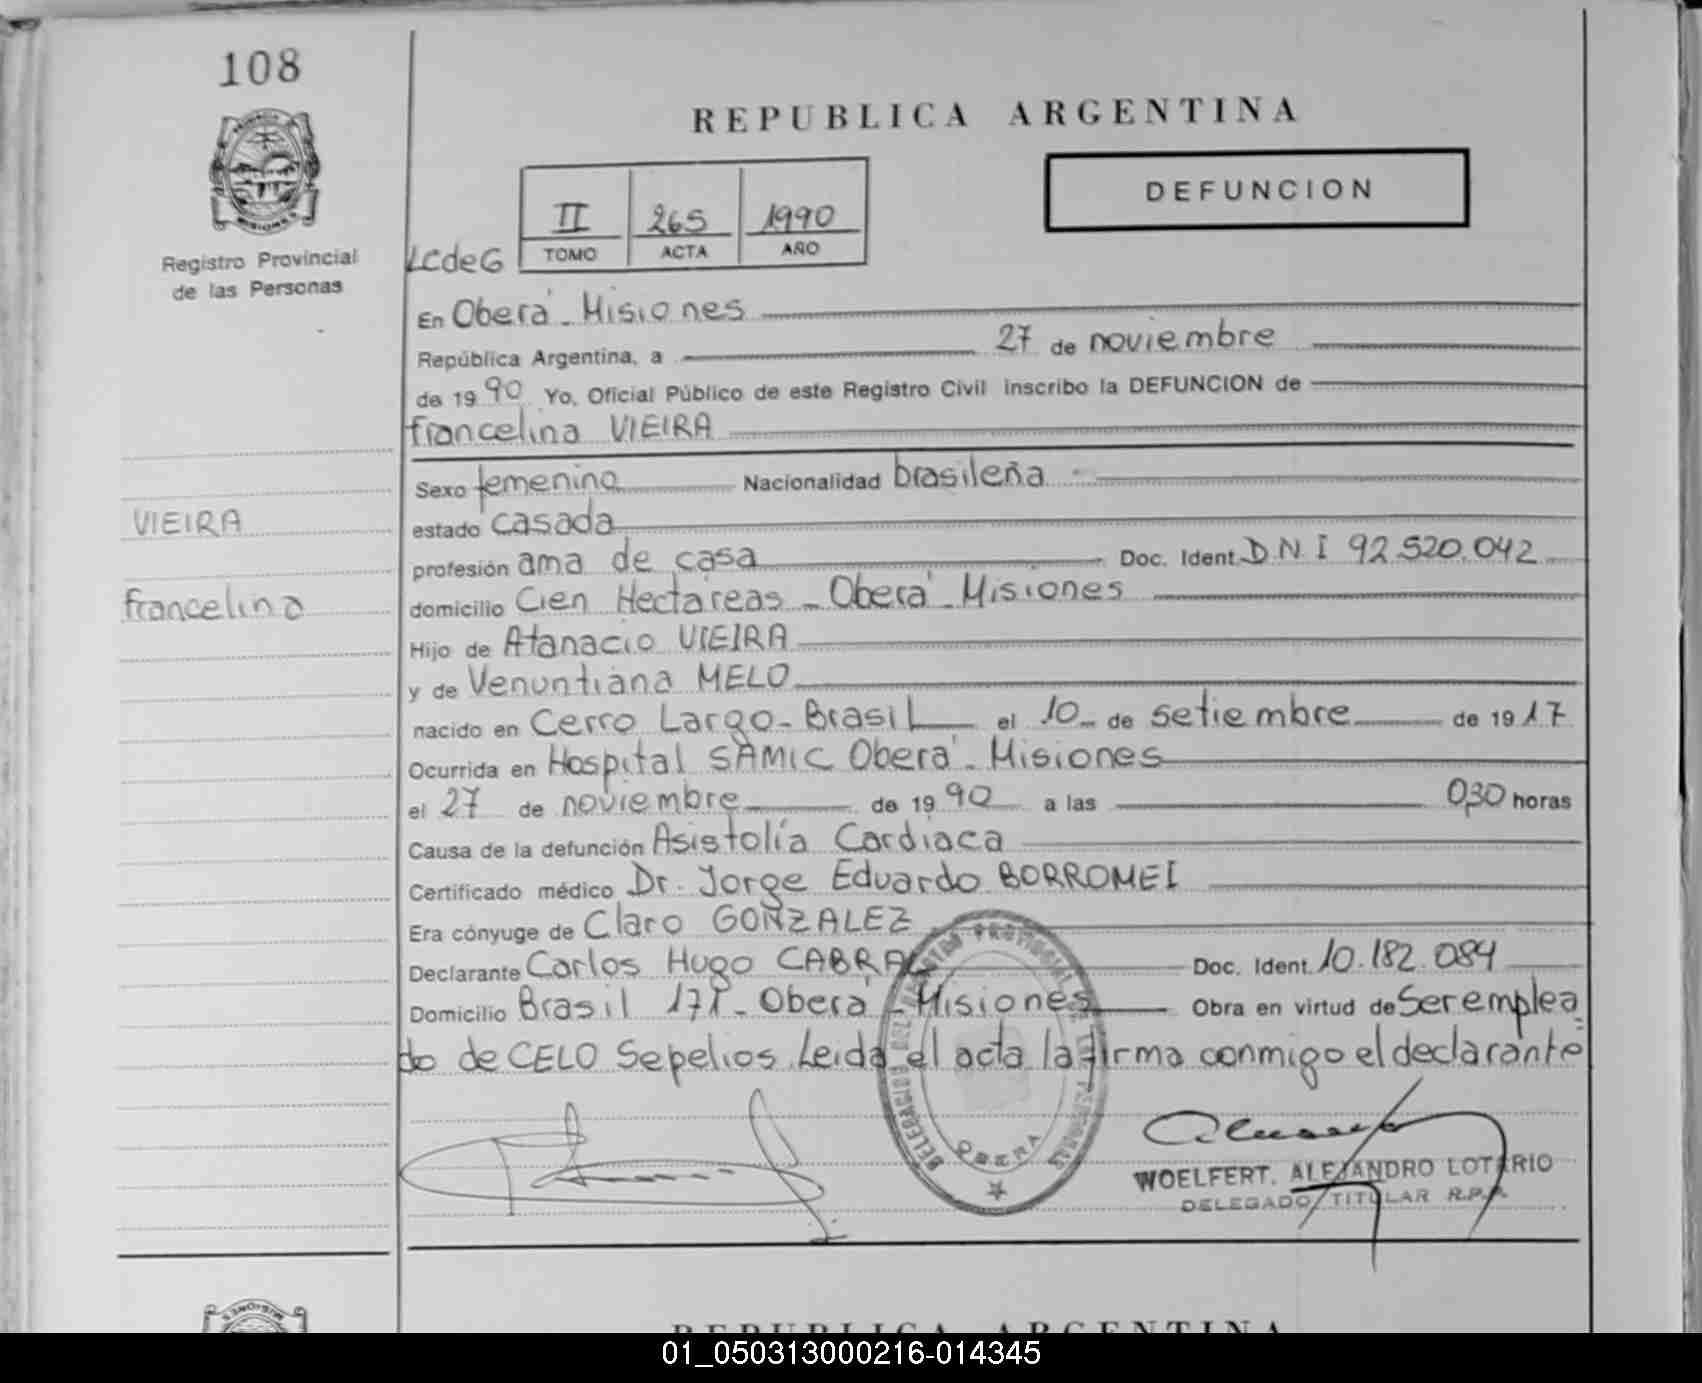 108
REPUBLICA ARGENTINA
DEFUNCION
II 265 1990
TOMO ACTA AÑO
Registro Provincial
de las Personas
LCdeG
En Oberá - Misiones
República Argentina, a 27 de noviembre
de 1990 Yo, Oficial Público de este Registro Civil inscribo la DEFUNCION de
francelina VIEIRA
Sexo femenino Nacionalidad brasileña
VIEIRA
estado casada
profesión ama de casa Doc. Ident. D.N.I 92.520.042
francelina
domicilio Cien Hectáreas - Oberá - Misiones
Hijo de Atanacio VIEIRA
y de Venuntiana MELO
nacido en Cerro Largo - Brasil el 10 de setiembre de 1917
Ocurrida en Hospital SAMIC Oberá - Misiones
el 27 de noviembre de 1990 a las 0,30 horas
Causa de la defunción Asistolía Cardiaca
Certificado médico Dr. Jorge Eduardo BORROMEI
Era cónyuge de Claro GONZALEZ
Declarante Carlos Hugo CABRAL Doc. Ident. 10.182.084
Domicilio Brasil 171 - Oberá - Misiones Obra en virtud de Ser emplea
do de CELO Sepelios. Leida el acta la firma conmigo el declarante
OBERA
WOELFERT, ALEJANDRO LOTARIO
DELEGADO TITULAR R.P.P.
MISIONES
REPUBLICA ARGENTINA
01_050313000216-014345